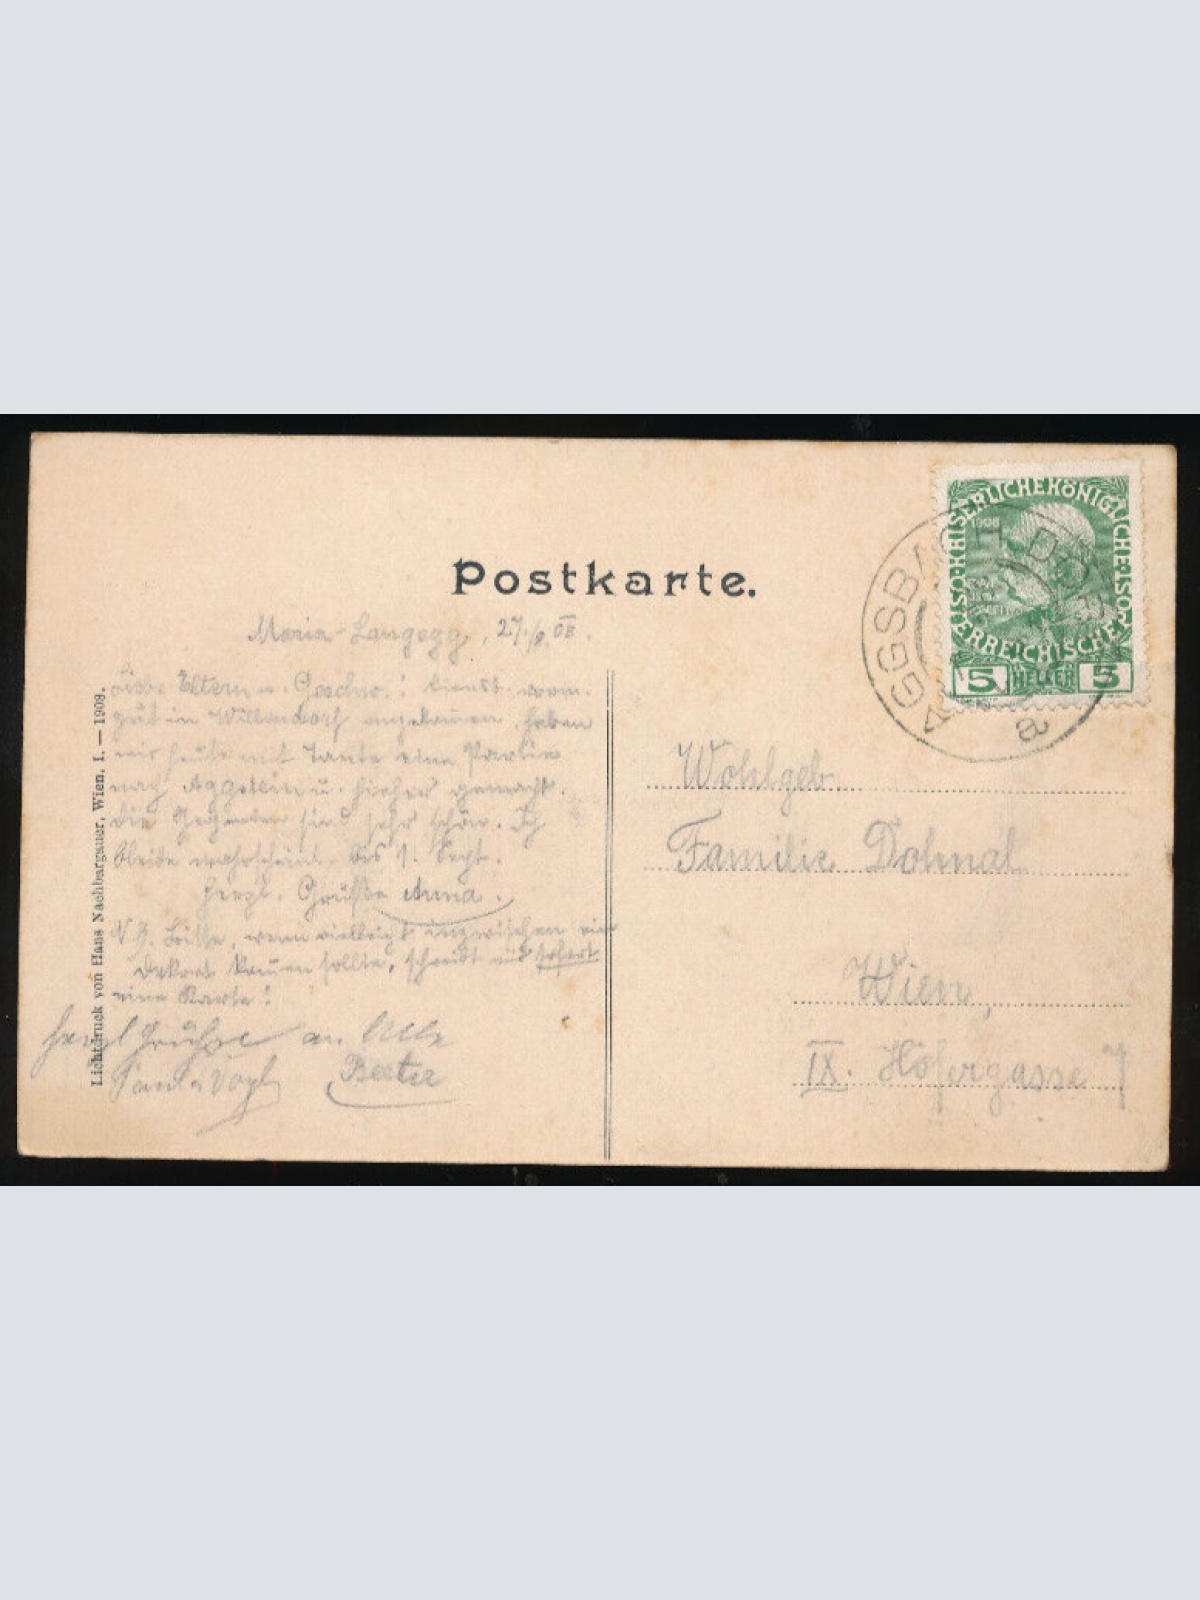 Postkarte.
Maria-Langegg, 27./8. 08.
Liebe Eltern u. Geschw.! Dienst. vorm.
gut in Willendorf angekommen, haben
wir heute mit Tante eine Partie
nach Aggstein u. hieher gemacht.
Die Gegenden sind sehr schön. Ich
bleibe wahrscheinl. bis 1. Sept.
Herzl. Grüße Anna.
N.B. Bitte, wenn vielleicht inzwischen ein
Dekret kommen sollte, schreibt mir sofort
eine Karte!
Herzl Grüße an Alle
Tante Vogl
Lichtdruck von Hans Nachbargauer, Wien, I. — 1908.
KAISERLICHE KÖNIGLICHE ÖSTERREICHISCHE POST
1908
5 HELLER 5
AGGSBACH DORF
a
Wohlgeb.
Familie Dolmal
Wien,
IX. Höfergasse 7